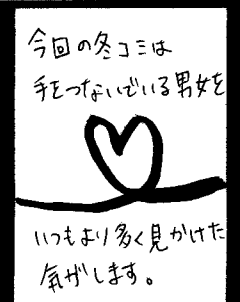 今回の冬コミは
手をつないでいる男女を
いつもより多く見かけた
気がします。